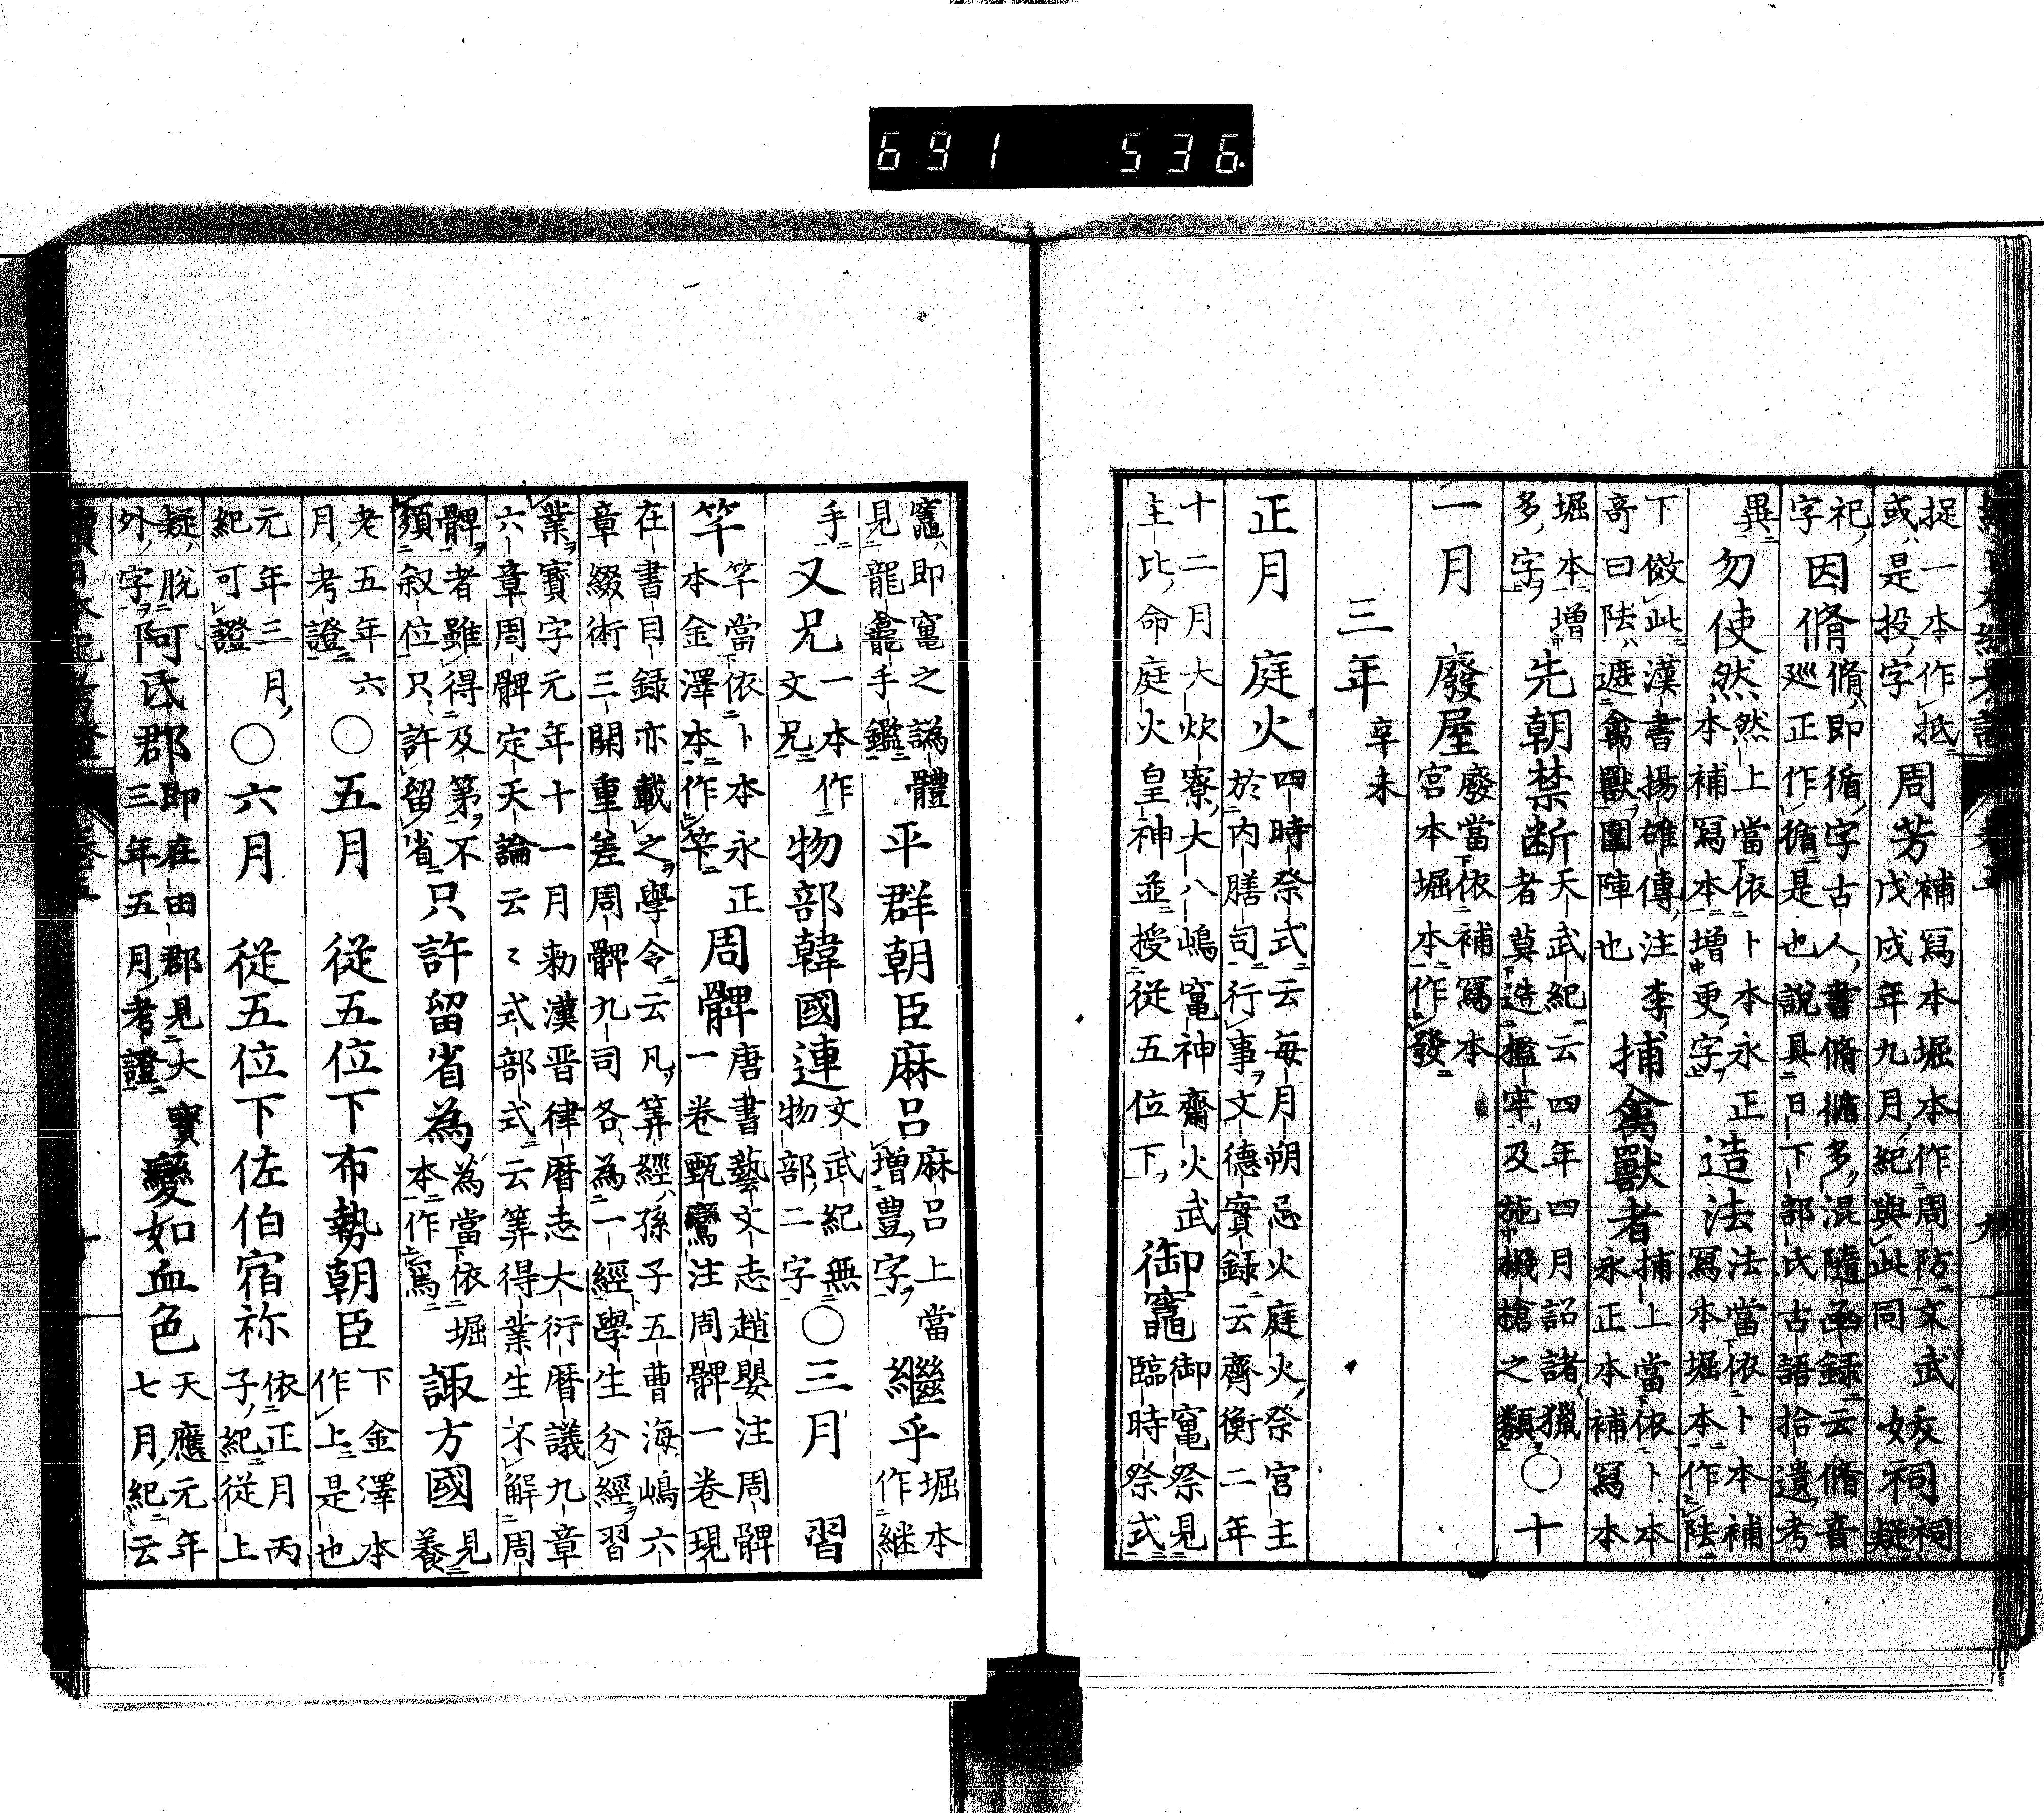 捉一本作抵或是投字周芳補寫本堀本作周防文武戊戌年九月紀與此同妖祠祠疑
祀字因脩脩即循字古人書脩循多混隨函録云脩音巡正作循是也說具日下部氏古語拾遺考
異勿使然然上當依卜本永正本補寫本増更字造法法當依卜本補寫本堀本作㳒
下傚此漢書揚雄傳注李奇曰㳒遮禽獸圍陣也捕禽獸者捕上當依卜本永正本補寫本
堀本増多字先朝禁断天武紀云四年四月詔諸獵者莫造檻穽及施機槍之類○十
一月　廢屋廢當依補寫本宮本堀本作發
三年辛未
正月　庭火四時祭式云毎月朔忌火庭火祭宮主於内膳司行事文德實録云齊衡二年
十二月大炊寮大八嶋竈神齋火武主比命庭火皇神並授從五位下御竈御竈祭見臨時祭式
竈即竃之譌體見龍龕手鑑平群朝臣麻呂麻呂上當増豊字繼乎堀本作継
手又兄一本作文兄物部韓國連文武紀無物部二字○三月　習
竿竿當依卜本永正本金澤本作笇周髀唐書藝文志趙嬰注周髀一卷甄鸞注周髀一卷現
在書目録亦載之學令云凡筭經孫子五曹海嶋六章綴術三開重差周髀九司各為一經學生分經習
業寳字元年十一月勅漢晋律暦志大衍暦議九章六章周髀定天論云々式部式云筭得業生不解周
髀者雖得及第不須叙位只許留省只許留省為為當依堀本作焉諏方國見養
老五年六月考證○五月　從五位下布勢朝臣下金澤本作上是也
元年三月紀可證○六月　從五位下佐伯宿祢依正月丙子紀從上
疑脱外字阿氐郡即在田郡見大寶三年五月考證變如血色天應元年七月紀云